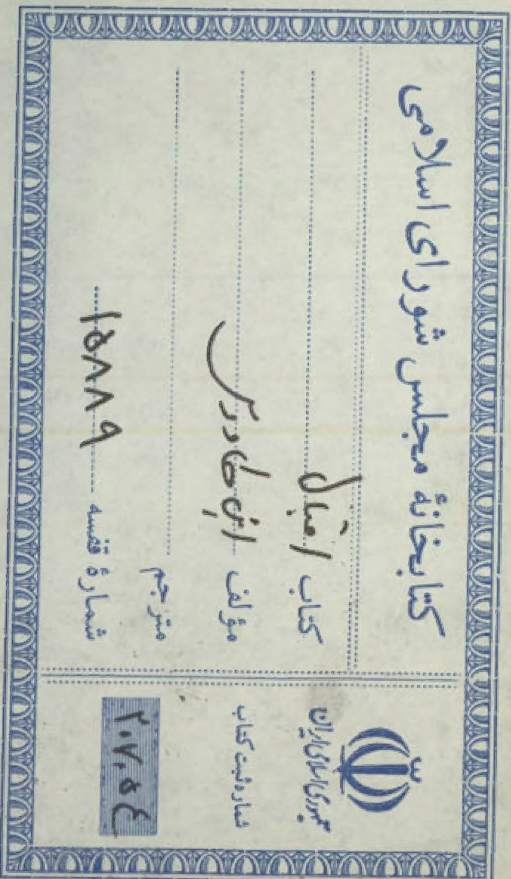 کتابخانهٔ مجلس شورای اسلامی
کتاب اقبال
مؤلف ابن طاووس
مترجم
شمارهٔ قفسه ۱۵۸۸۹
جمهوری اسلامی ایران
شماره ثبت کتاب
۲۰۷۰۵۴